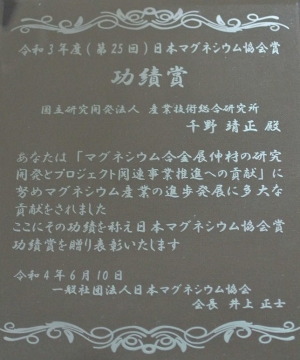 令和3年度(第25回)日本マグネシウム協会賞
功績賞
国立研究開発法人 産業技術総合研究所
千野 靖正 殿
あなたは「マグネシウム合金展伸材の研究
開発とプロジェクト関連事業推進への貢献」に
努めマグネシウム産業の進歩発展に多大な
貢献をされました
ここにその功績を称え日本マグネシウム協会賞
功績賞を贈り表彰いたします
令和4年6月10日
一般社団法人日本マグネシウム協会
会長 井上 正士